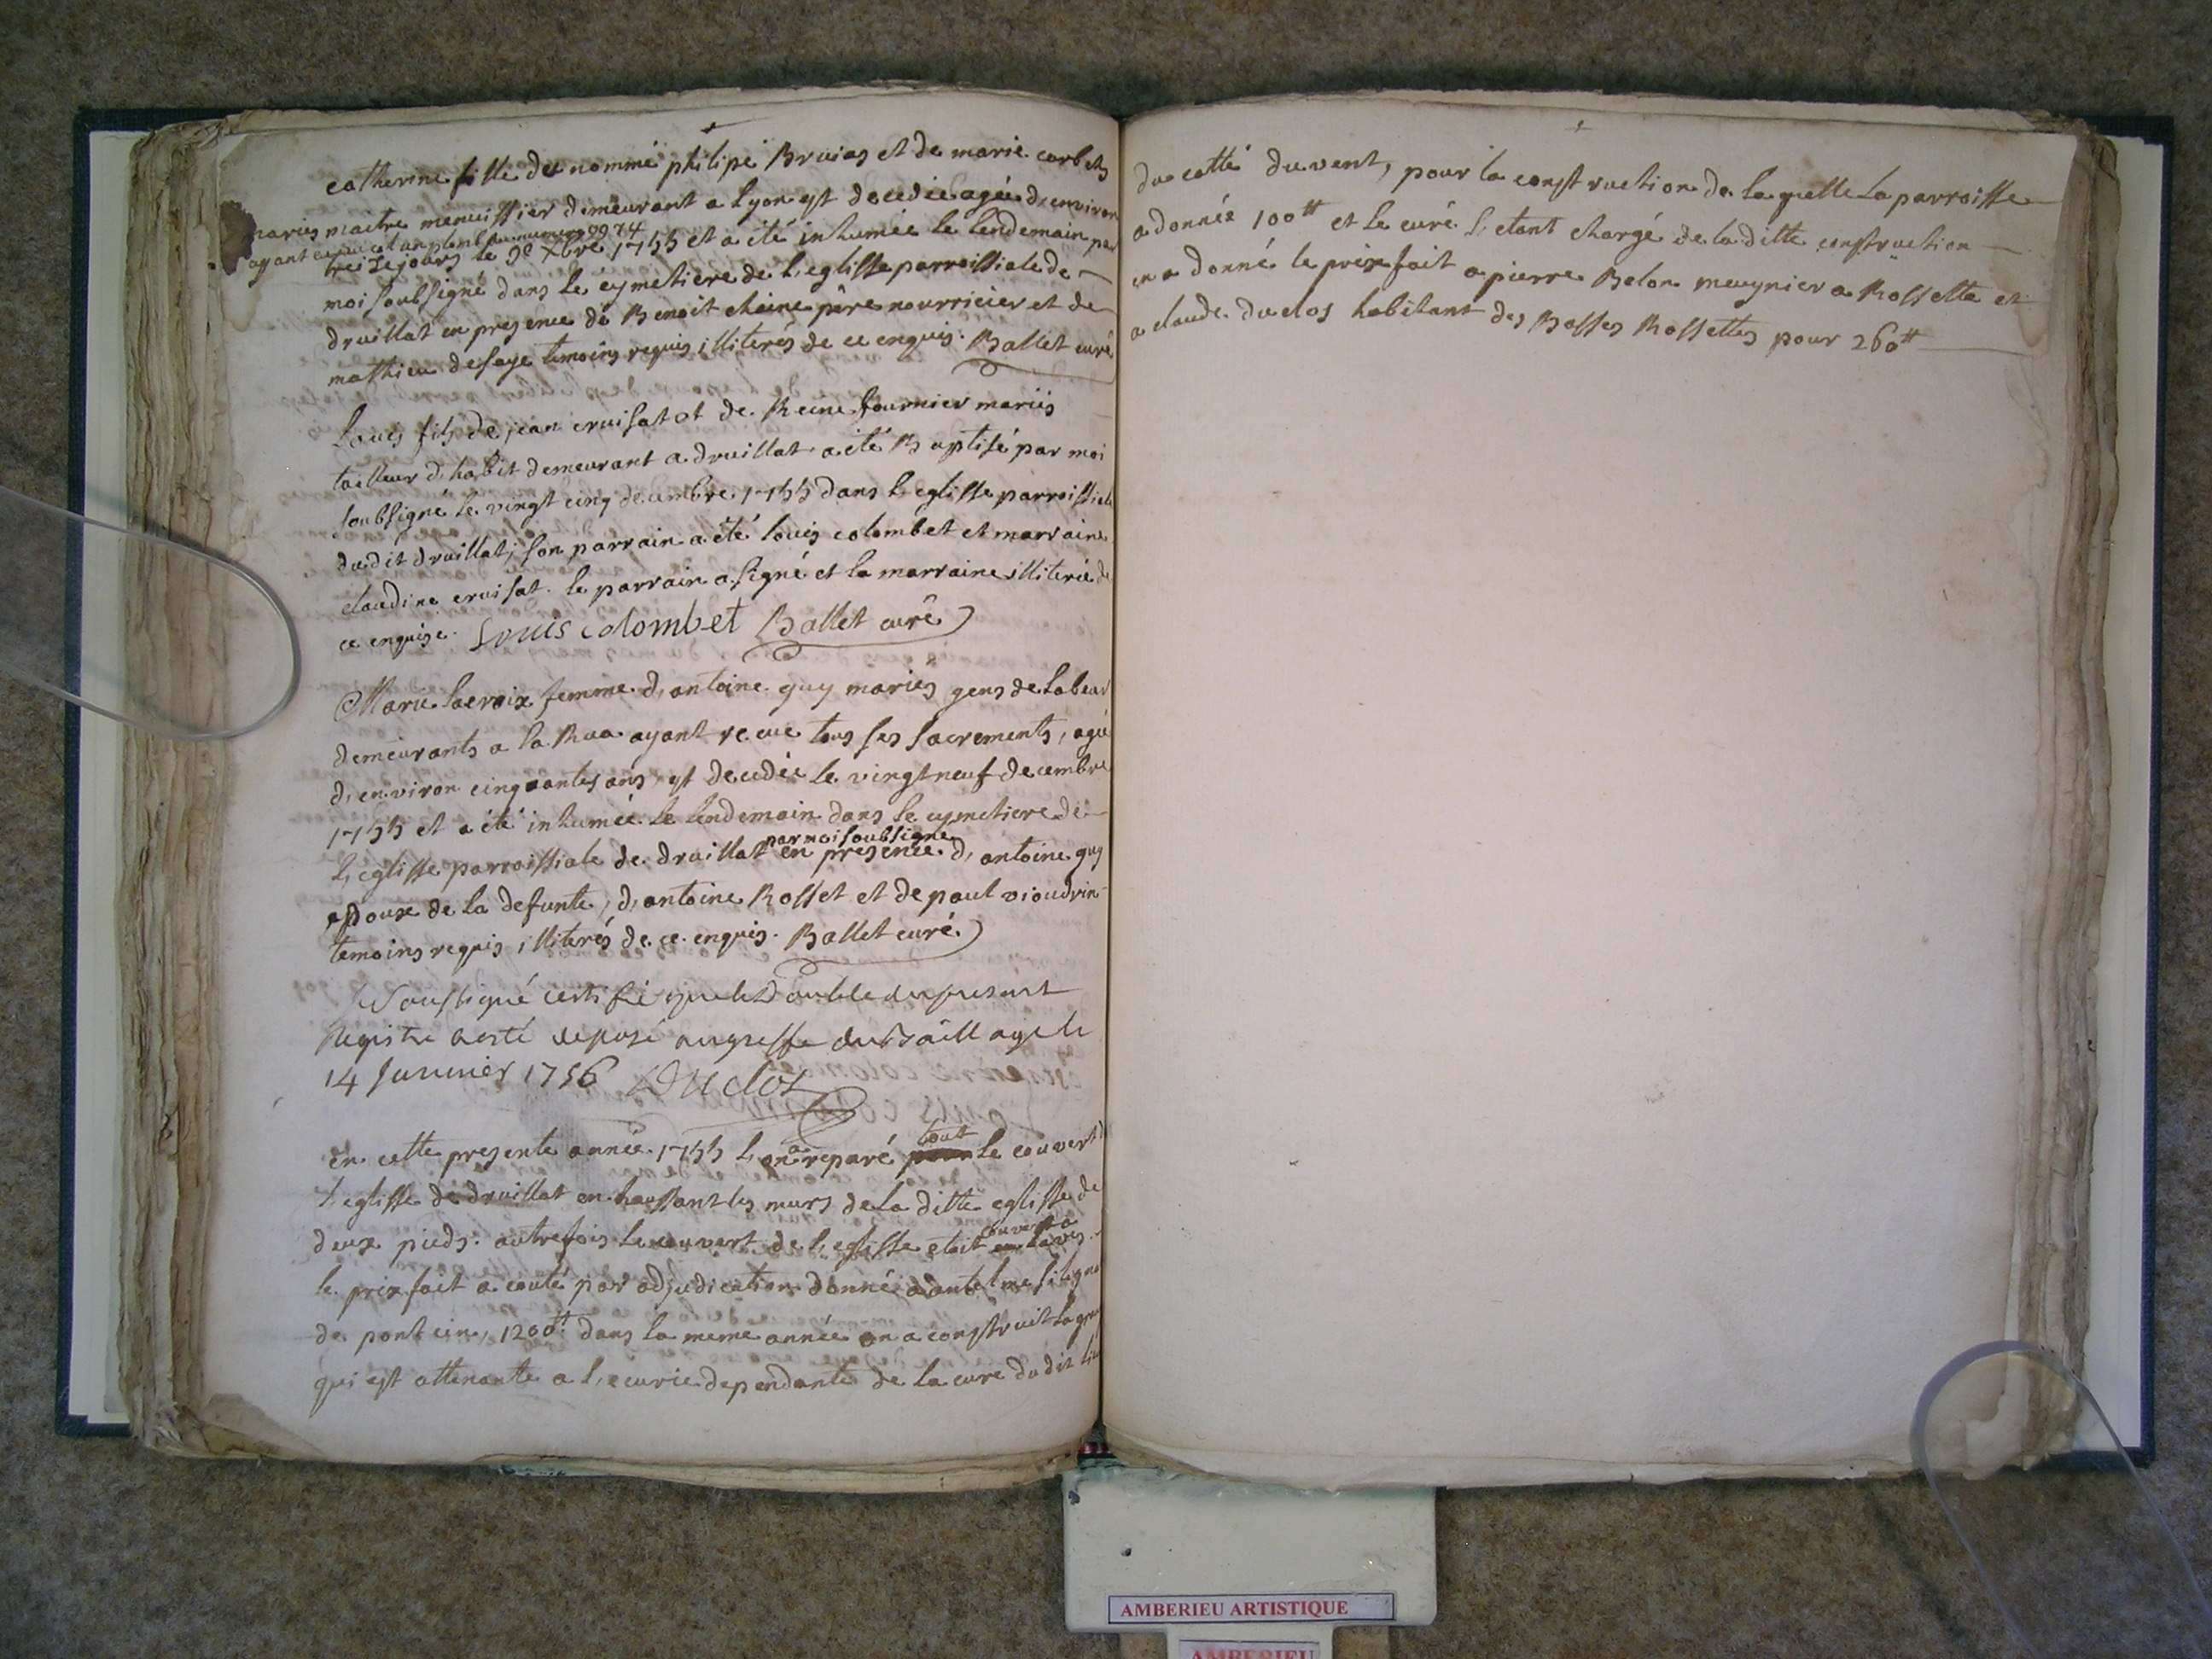 catherine fille du nommé philipe Bruias et de marie corbet
mariés maitre menuissier demeurant a Lyon est decedée agée d'environ
ayant au cou cet un plomb au numero 9974
treize jours le 9e Xbre 1755 et a été inhumée le lendemain par
moi soubsigné dans le cymetiere de l'eglisse parroissiale de
druillat en presence de Benoit chaine père nourricier et de
mathieu defaye temoins requis illiterés de ce enquis. Ballet curé
Louis fils de jean cruisat et de Reine fournier mariés
tailleur d'habit demeurant a druillat a été Baptisé par moi
soubsigné le vingt cinq decembre 1755 dans l'eglisse parroissiale
dudit druillat; son parrain a été louis colombet et marraine
claudine cruisat. le parrain a signé et la marraine illiterée de
ce enquise. Louis colombet Ballet curé
Marie lacroix femme d'antoine guy mariés gens de labeur
demeurants a la Rua ayant recue tous ses sacrements, agée
d'environ cinquantes ans, est decedée le vingt neuf decembre
1755 et a été inhumée le lendemain dans le cymetiere de
par moi soubsigné
l'eglisse parroissiale de druillat en presence d'antoine guy
epoux de la defunte, d'antoine Rosset et de paul vioudrin
temoins requis illiterés de ce enquis. Ballet curé
Soussigné certifie que le Double du present
Registre a esté deposé au greffe du Baillage le
14 Janvier 1756 Duclos
en cette presente année 1755 l'on a reparé tout le couvert d
l'eglisse de druillat en haussant les murs de la ditte eglisse de
deux pieds. autrefois le couvert de l'eglisse etoit couvert a laves.
le prix fait a couté par adjudication donnée a antelme
de pont ein, 1200tt. dans la meme année on a construit la
qui est attenante a l'ecurie dependante de la cure du dit lieu
du cotté du vent, pour la construction de laquelle la parroisse
a donnée 100tt et le curé s'etant chargé de la ditte construction
en a donné le prix fait a pierre Belon meuynier a Rossette et
a claude duclos habitant des Basses Rossettes pour 260tt
AMBERIEU ARTISTIQUE
AMBERIEU